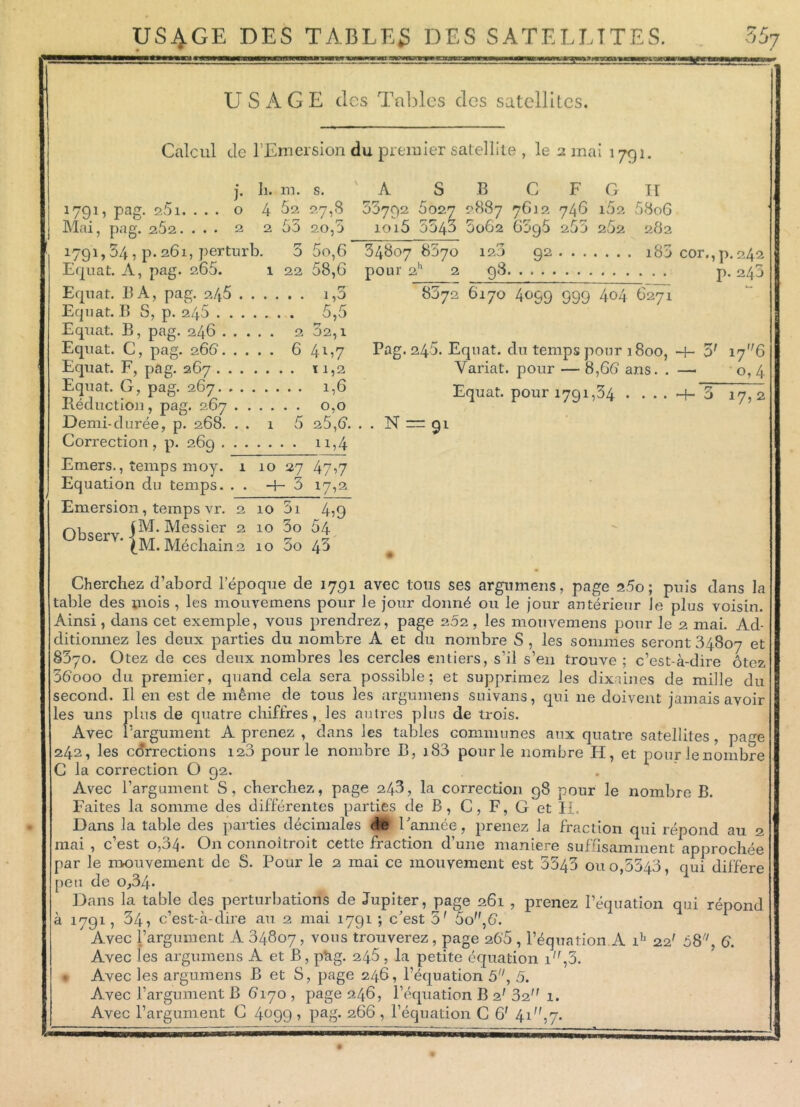 USAGE DES TABLES DES SATELLITES. 357
USAGE des Tables des satellites.
Calcul de l'Emersion du premier satellite , le 2 mai 1791.
j. h. m. s. A S B C F G H
1791, pag. 251. . . . 0 4 52 27,8 33792 5027 2887 7612 746 152 5806
Mai, pag. 252. . . . 2 2 53 20,3 1015 3343 3062 6395 253 252 282
1791,34, p. 261, perturb. 3 50,6 34807 8370 123 92 . . . . . . . 183 cor., p. 242
Equat. A, pag. 265. 1 22 58,6 pour 2h 2 98. . . . . . . . . . . . . . p. 243
Equat. BA, pag. 245 . . . . . . 1,3 8372 6170 4099 999 404 6271
Equat. B S, p. 245 . . . . . . . 5,5
Equat. B, pag. 246 . . . . . 2 32,1
Equat. C, pag. 266. . . . . 6 41,7 Pag. 245. Equat. du temps pour 1800, + 3' 17"6
Equat. F, pag. 267 . . . . . . . 11,2 Variat. pour — 8,66 ans. . — 0,4
Equat. G, pag. 267. . . . . . . . 1,6 Equat. pour 1791,34 . . . . + 3 17,2
Réduction, pag. 267 . . . . . . 0,0
Demi-durée, p. 268. . . 1 5 25,6. . . N = 91
Correction, p. 269 . . . . . . . 11,4
Emers., temps moy. 1 10 27 47,7
Equation du temps. . . + 3 17,2
Emersion, temps vr. 2 10 31 4,9
Observ. { M. Messier 2 10 30 54
{ M. Méchain 2 10 30 43
Cherchez d'abord l'époque de 1791 avec tous ses argumens, page 250; puis dans la
table des mois , les mouvemens pour le jour donné ou le jour antérieur le plus voisin.
Ainsi, dans cet exemple, vous prendrez, page 252, les mouvemens pour le 2 mai. Ad-
ditionnez les deux parties du nombre A et du nombre S , les sommes seront 34807 et
8370. Otez de ces deux nombres les cercles entiers, s'il s'en trouve ; c'est-à-dire ôtez
36000 du premier, quand cela sera possible; et supprimez les dixaines de mille du
second. Il en est de même de tous les argumens suivans, qui ne doivent jamais avoir
les uns plus de quatre chiffres, les autres plus de trois.
Avec l'argument A prenez , dans les tables communes aux quatre satellites, page
242, les corrections 123 pour le nombre B, 183 pour le nombre H, et pour le nombre
C la correction O 92.
Avec l'argument S, cherchez, page 243, la correction 98 pour le nombre B.
Faites la somme des différentes parties de B, C, F, G et H.
Dans la table des parties décimales de l'année, prenez la fraction qui répond au 2
mai , c'est 0,34. On connoîtroit cette fraction d'une maniere suffisamment approchée
par le mouvement de S. Pour le 2 mai ce mouvement est 3343 ou 0,3343, qui differe
peu de 0,34.
Dans la table des perturbations de Jupiter, page 261 , prenez l'équation qui répond
à 1791, 34, c'est-à-dire au 2 mai 1791 ; c'est 3' 50",6.
Avec l'argument A 34807, vous trouverez, page 265, l'équation A 1h 22' 58", 6.
Avec les argumens A et B, pag. 245, la petite équation 1",3.
Avec les argumens B et S, page 246, l'équation 5", 5.
Avec l'argument B 6170, page 246, l'équation B 2' 32" 1.
Avec l'argument C 4099, pag. 266, l'équation C 6' 41",7.